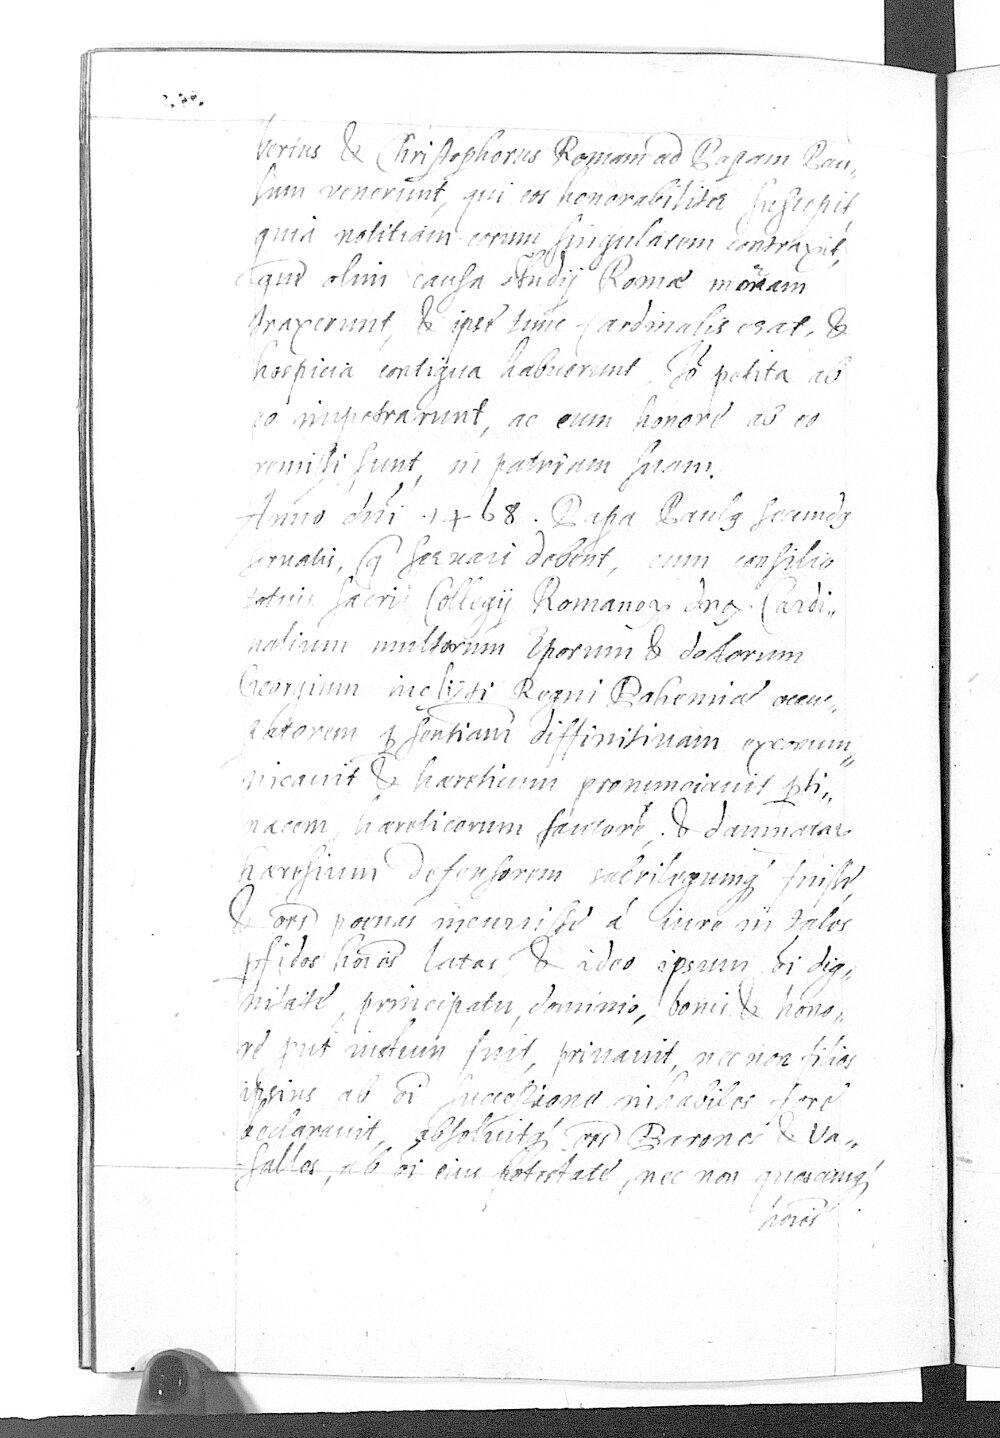 vertus & Christophorus Romam ad Papam Pau„
lum venerunt, qui eos honorabiliter suscepit,
quia notitiam eorum singularem contraxit,
quod olim causa studij Romæ moram
traxerunt, & ipse tunc Cardinalis erat, &
hospicia contigua habuerunt, Jō petita ab
eo impetrarunt, ac cum honore ab eo
remissi sunt, in patriam suam.
Anno dni 1468. Papa Paulq secundq
servatis, q servari debent, cum consilio
totius sacri Collegij Romanor dnor Cardi„
nalium multorum Eporum & doctorum
Georgium inclyti Regni Bohemiæ occu„
patorem p sentiam diffinitivam excomm„
nicavit & hæreticum pronunciavit pti„
nacem, hæreticorum fautorē, & damnatar
hæresium defensorem sacrilegumq fuisse,
& oes poenas incurrisse á iure in tales
pfidos hoies latas & ideo ipsum oi dig„
nitate, principatu, dominio, bonis & hono„
re put iustum fuit, privavit, nec non filios
ipsius ab oi successione inhabiles fore
declaravit, absolvitq oes Barones & va„
sallos, ab oi eius potestate, nec non quoscunq
hoies